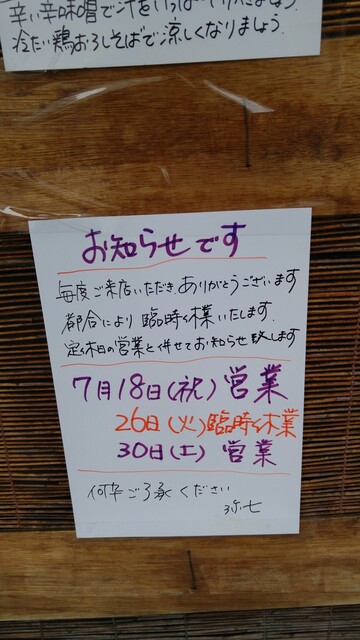 冷たい鶏おろしそばで涼しくなりましょう。
お知らせです
毎度ご来店いただき、ありがとうございます
都合により臨時休業いたします。
定休日の営業と併せてお知らせ致します
7月18日(祝)営業
26日(火)臨時休業
30日(土)営業
何卒ご了承ください
弥七